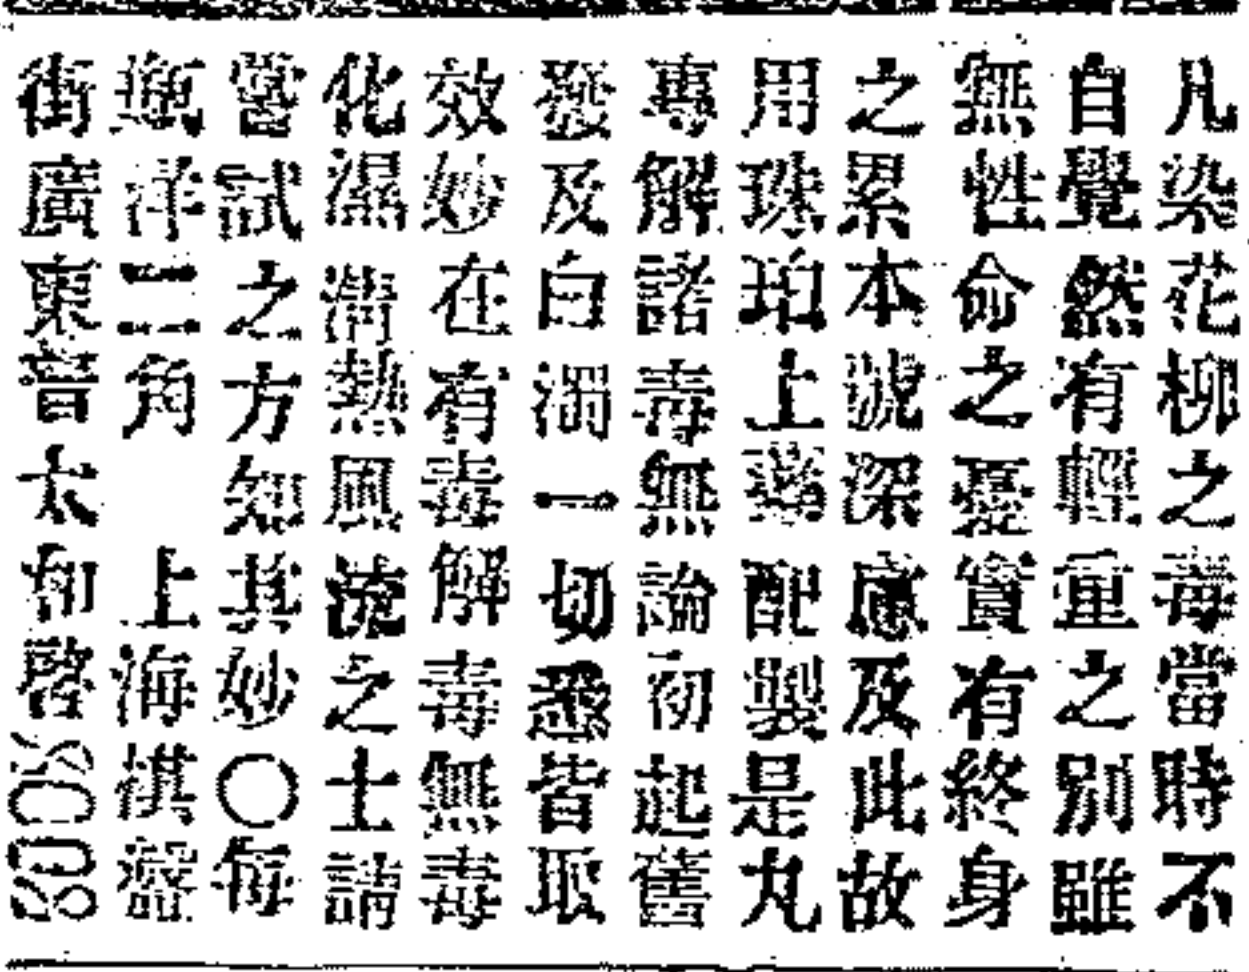 凡染花柳之毒當時不
自覺然有輕重之別雖
無性命之憂實有終身
之累本號深慮及此故
用珠珀上藥配製是丸
專解諸毒無論初起舊
發及白濁一切恶皆取
效妙在有毒解毒無毒
化濕清熱風流之士請
嘗試之方知其妙〇每
瓶洋二角 上海棋盤
街廣東晉太和啓